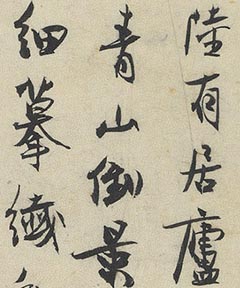 陸有居廬
青山倒景
細摹纖